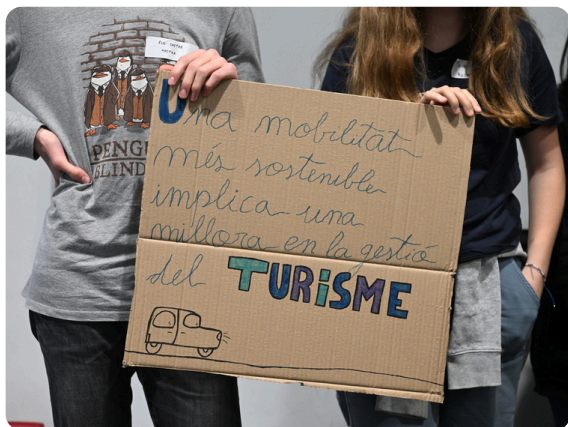 PENGU
BLIND
Una mobilitat
més sostenible
implica una
millora en la gestió
del TURiSME